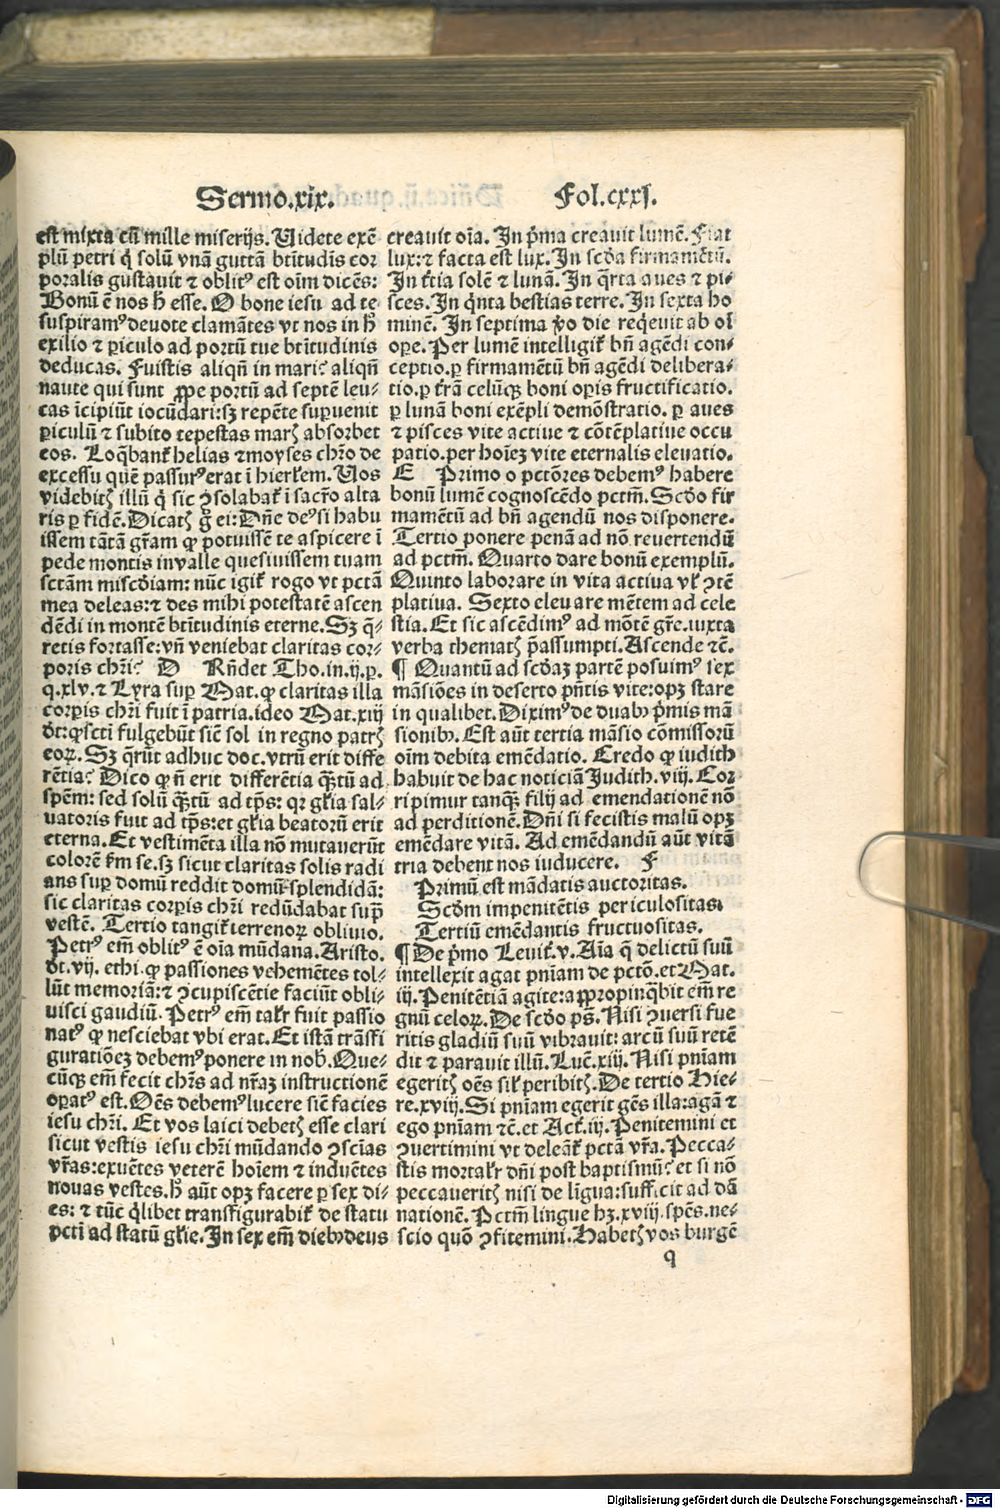 Sermo.xix.
Fol.cxxj.
est mixta cū mille miserijs. Uidete exē
plū petri q̇ solū vnā guttā btītudīs cor
poralis gustauit ⁊ oblitꝰ est oīm dicēs:
Bonū ē nos ħ esse. O bone iesu ad te
suspiramꝰ deuote clamātes vt nos in ħ
exilio ⁊ ꝑiculo ad portū tue btītudinis
deducas. Fuistis aliqñ in mari? aliqñ
naute qui sunt ꝓpe portū ad septē leu⸗
cas īcipiūt iocūdari:sꝫ repēte suꝑuenit
ꝑiculū ⁊ subito tēpestas marꝭ absorbet
eos. Loq̄banť helias ⁊ moyses chrō de
excessu quē passurꝰ erat ī hierłem. Uos
videbitꝭ illū q̇ sic ꝯsolabať ī sacrō alta
ris ꝑ fidē. Dicatꝭ g̊ ei: Dñe deꝰ si habu
issem tātā grām ꝙ potuissē te aspicere ī
pede montis in valle quesiuissem tuam
sctām miscdiam: nūc igiť rogo vt pctā
mea deleas:⁊ des mihi potestatē ascen
dēdi in montē btītudinis eterne. Sꝫ q̄⸗
retis fortasse: vñ veniebat claritas cor⸗
poris chrī? D Rñdet Tho.in.ij.p.
q.xlv.⁊ Lyra suꝑ Mat.ꝙ claritas illa
corꝑis chrī fuit ī patria.ideo Mat.xiij
dt: ꝙ scti fulgebūt sic̄ sol in regno patrꝭ
eoꝝ. Sꝫ q̄rūt adhuc doc. vtrū erit diffe
rētia? Dico ꝙ ñ erit differētia q̄ꝫtū ad
spēm: sed solū q̄ꝫtū ad tp̄s: qꝛ głia sal⸗
uatoris fuit ad tp̄s: et głia beatorū erit
eterna. Et vestimēta illa nō mutauerūt
colorē fm se. sꝫ sicut claritas solis radi
ans suꝑ domū reddit domū splendidā:
sic claritas corꝑis chrī redūdabat suꝑ
vestē. Tertio tangiť terrenoꝝ obliuio.
Petrꝰ em̄ oblitꝰ ē oīa mūdana. Aristo.
dt.vij. ethi. ꝙ passiones vehemētes tol⸗
lūt memoriā:⁊ ꝯcupiscētie faciūt obli⸗
uisci gaudiū. Petrꝰ em̄ talr̄ fuit passio
natꝰ ꝙ nesciebat vbi erat. Et istā trāsfi
guratiōeꝫ debemꝰ ponere in nob̄. Que⸗
cūqꝫ em̄ fecit chrs̄ ad nr̄aꝫ instructionē
oꝑatꝰ est. Oēs debemꝰ lucere sic̄ facies
iesu chrī. Et vos laici debetꝭ esse clari
sicut vestis iesu chrī mūdando ꝯscīas
vr̄as: exuētes veterē hoīem ⁊ induētes
nouas vestes. ħ aūt opꝫ facere ꝑ sex di⸗
es: ⁊ tūc q̇libet transfigurabiť de statu
pcti ad statū głie. In sex em̄ diebꝰ deus
creauit oīa. In p̄ma creauit lumē. Fiat
lux:⁊ facta est lux. In scda firmamētū.
In t̄tia solē ⁊ lunā. In q̄rta aues ⁊ pi⸗
sces. In q̇nta bestias terre. In sexta ho
minē. In septima v̊o die reqeuit ab oī
oꝑe. Per lumē intelligiť bñ agēdi con⸗
ceptio. ꝑ firmamētū bñ agēdi delibera⸗
tio. ꝑ t̄rā celūqꝫ boni oꝑis fructificatio.
ꝑ lunā boni exēpli demōstratio. ꝑ aues
⁊ pisces vite actiue ⁊ cōtēplatiue occu
patio. per hoīeꝫ vite eternalis eleuatio.
E Primo o pctōres debemꝰ habere
bonū lumē cognoscēdo pctm̄. Scdo fir
mamētū ad bñ agendū nos disponere.
Tertio ponere penā ad nō reuertendū
ad pctm̄. Quarto dare bonū exemplū.
Quinto laborare in vita actiua vł ꝯtē
platiua. Sexto eleuare mētem ad cele
stia. Et sic ascēdimꝰ ad mōtē gr̄e. iuxta
verba thematꝭ p̄assumpti. Ascende ⁊c̄.
¶ Quantū ad scdaꝫ partē posuimꝰ sex
māsiōes in deserto pñtis vite: opꝫ stare
in qualibet. Diximꝰ de duabꝰ p̄mis mā
sionibꝰ. Est aūt tertia māsio cōmissorū
oīm debita emēdatio. Credo ꝙ iudith
habuit de hac noticiā Judith. viij. Cor
ripimur tanqꝫ filij ad emendationē nō
ad perditionē. Dñi si fecistis malū opꝫ
emēdare vitā. Ad emēdandū aūt vitā
tria debent nos inducere. F
Primū est mādatis auctoritas.
Scdm impenitētis periculositas.
Tertiū emēdantis fructuositas.
¶ De p̄mo Leuiť.v. Aīa q̄ delictū suū
intellexit agat pnīam de pctō. et Mat.
iij. Penitētiā agite: appropinq̄bit em̄ re
gnū celoꝝ. De scdo ps̄. Nisi ꝯuersi fue
ritis gladiū suū vibrauit: arcū suū retē
dit ⁊ parauit illū. Luc̄.xiij. Nisi pnīam
egeritꝭ oēs silr̄ peribitꝭ. De tertio Hie⸗
re.xviij. Si pnīam egerit gēs illa: agā ⁊
ego pnīam ⁊c̄. et Act̄.iij. Penitemini et
ꝯuertimini vt deleāť pctā vr̄a. Pecca⸗
stis mortalr̄ dñi post baptismū? et si nō
peccaueritꝭ nisi de līgua: sufficit ad dā
nationē. Pctm̄ lingue hꝫ.xviij. spēs. ne⸗
scio quō ꝯfitemini. Habetꝭ vos burgē
q
Digitalisierung gefördert durch die Deutsche Forschungsgemeinschaft - DFG